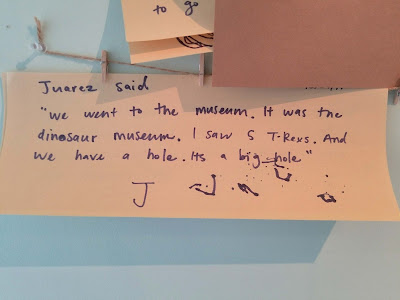 to go
Juarez said
"we went to the museum. It was the
dinosaur museum. I saw 5 T-Rexs. And
we have a hole. Its a big hole"
J